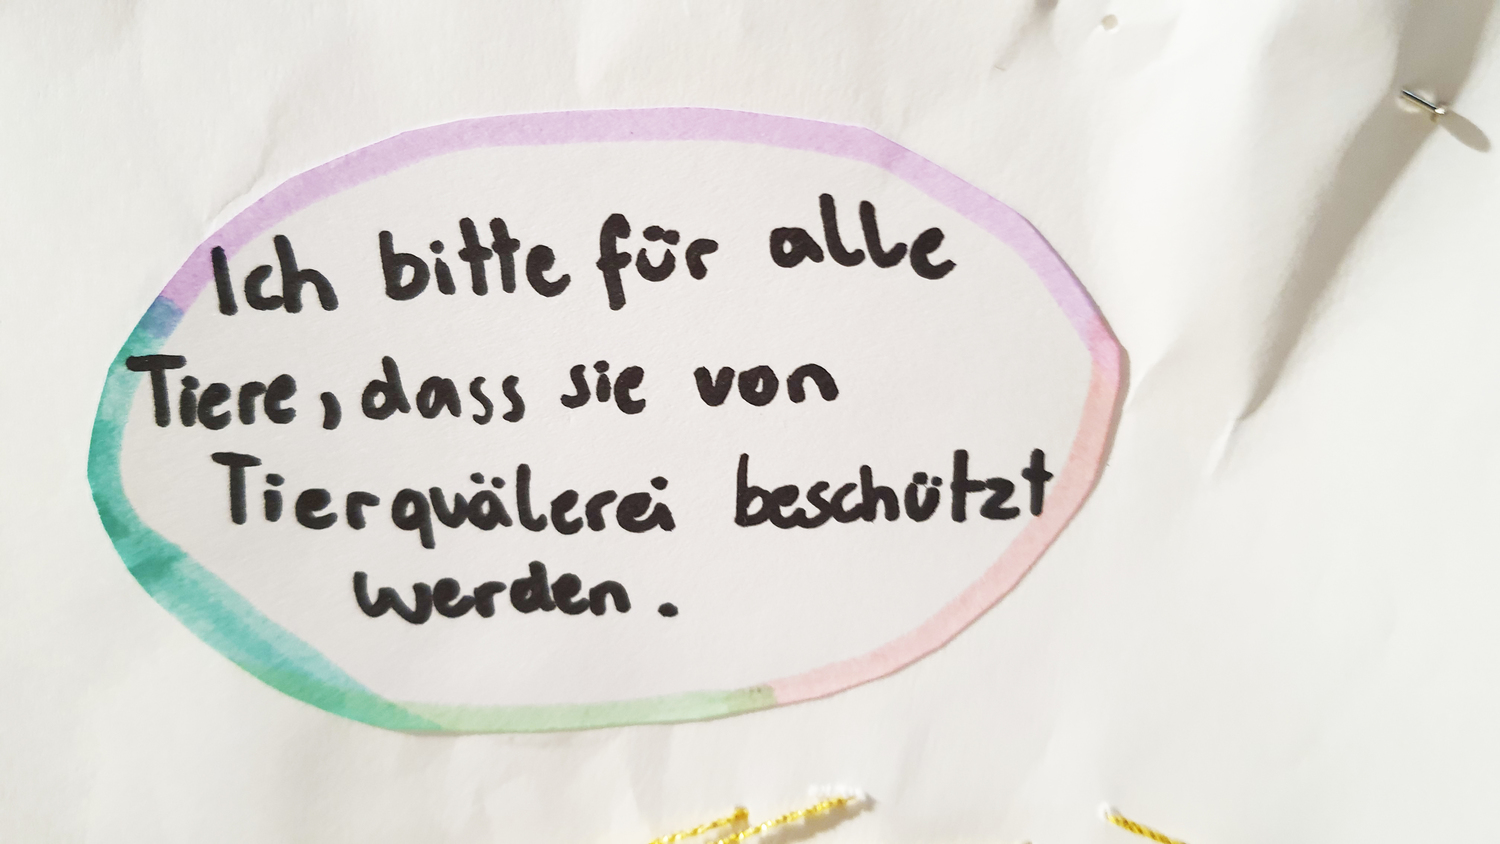 Ich bitte für alle
Tiere, dass sie von
Tierquälerei beschützt
werden.